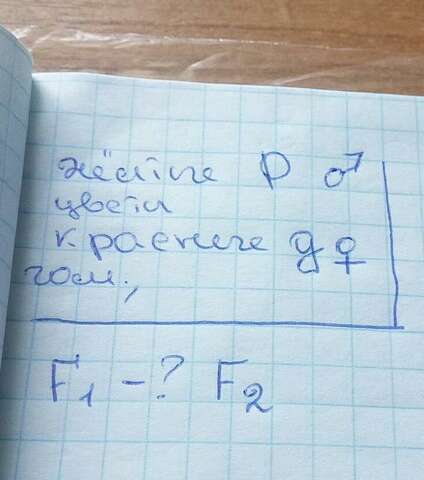 жёлтые P ♂
цветы
красные g ♀
гом.,
F₁ –? F₂